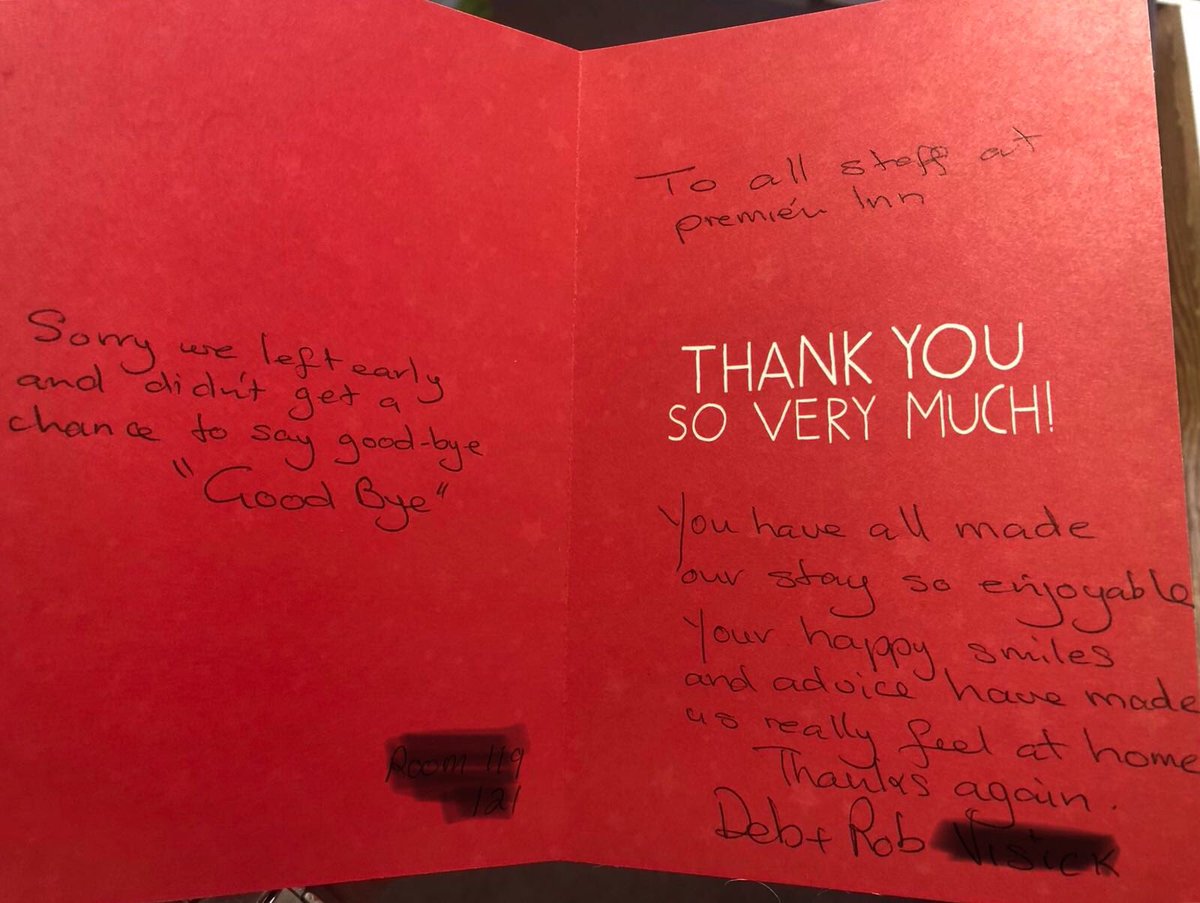 Sorry we left early
and didn't get a
chance to say good-bye
"Good Bye"
To all staff at
premiér Inn
THANK YOU
SO VERY MUCH!
You have all made
our stay so enjoyable
Your happy smiles
and advice have made
us really feel at home
Thanks again.
Deb + Rob